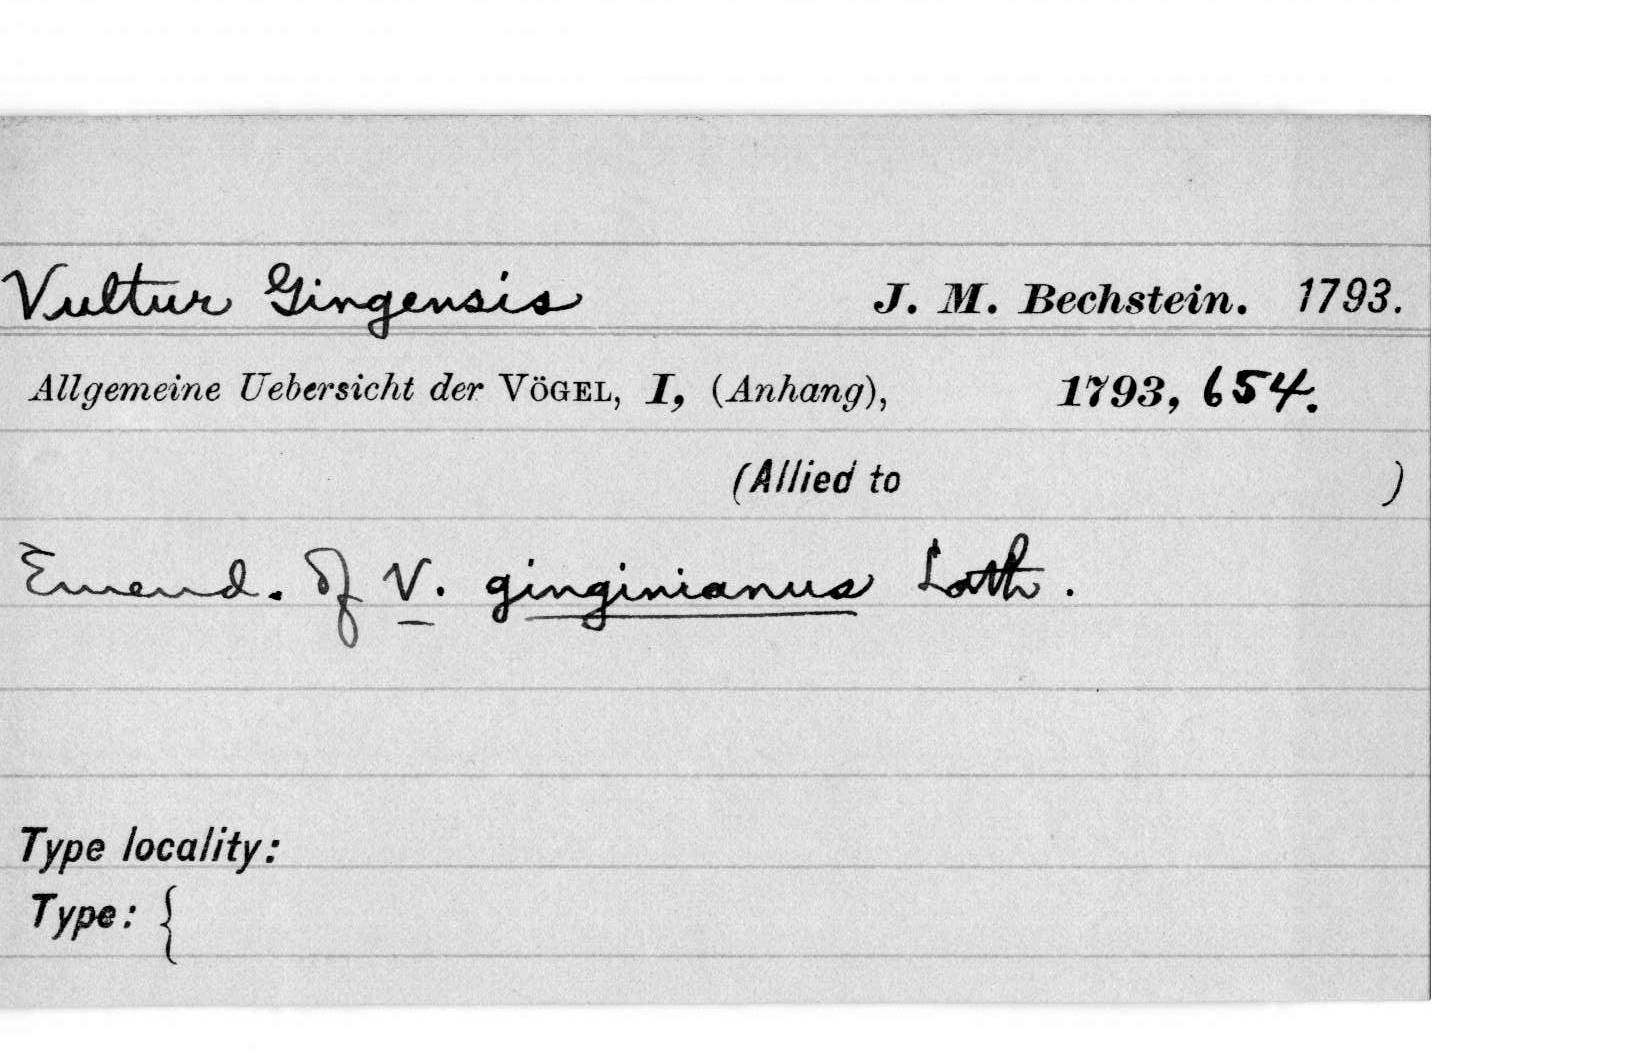 Vultur Gingensis J. M. Bechstein. 1793.
Allgemeine Uebersicht der VÖGEL, I, (Anhang), 1793, 654.
(Allied to )
Emend. of V. ginginianus Lath.
Type locality:
Type: {